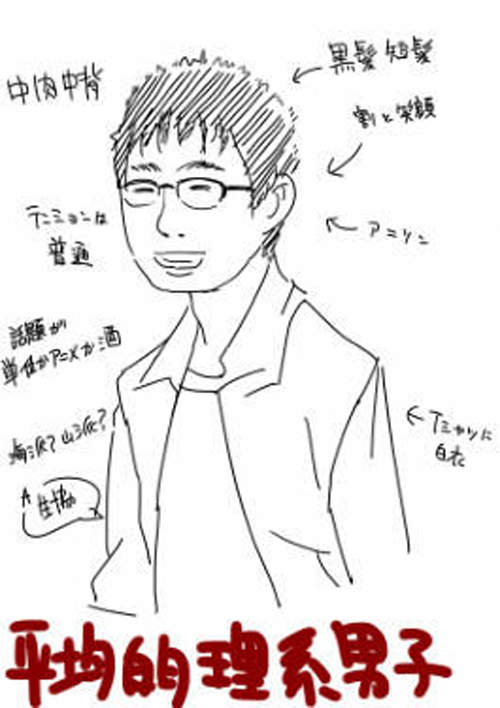 中肉中背
黒髪 短髪
割と笑顔
テンションは
普通
アニソン
話題が
単位かアニメか酒
海派?山派?
A 生協
Tシャツに
白衣
平均的理系男子